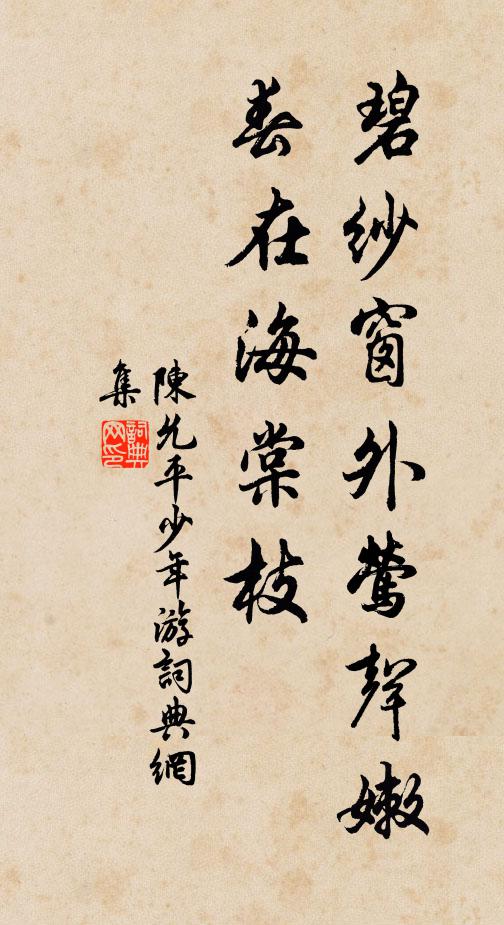 碧紗窗外鶯聲嫩
春在海棠枝
陳允平少年游詞典網
集
詞典網印